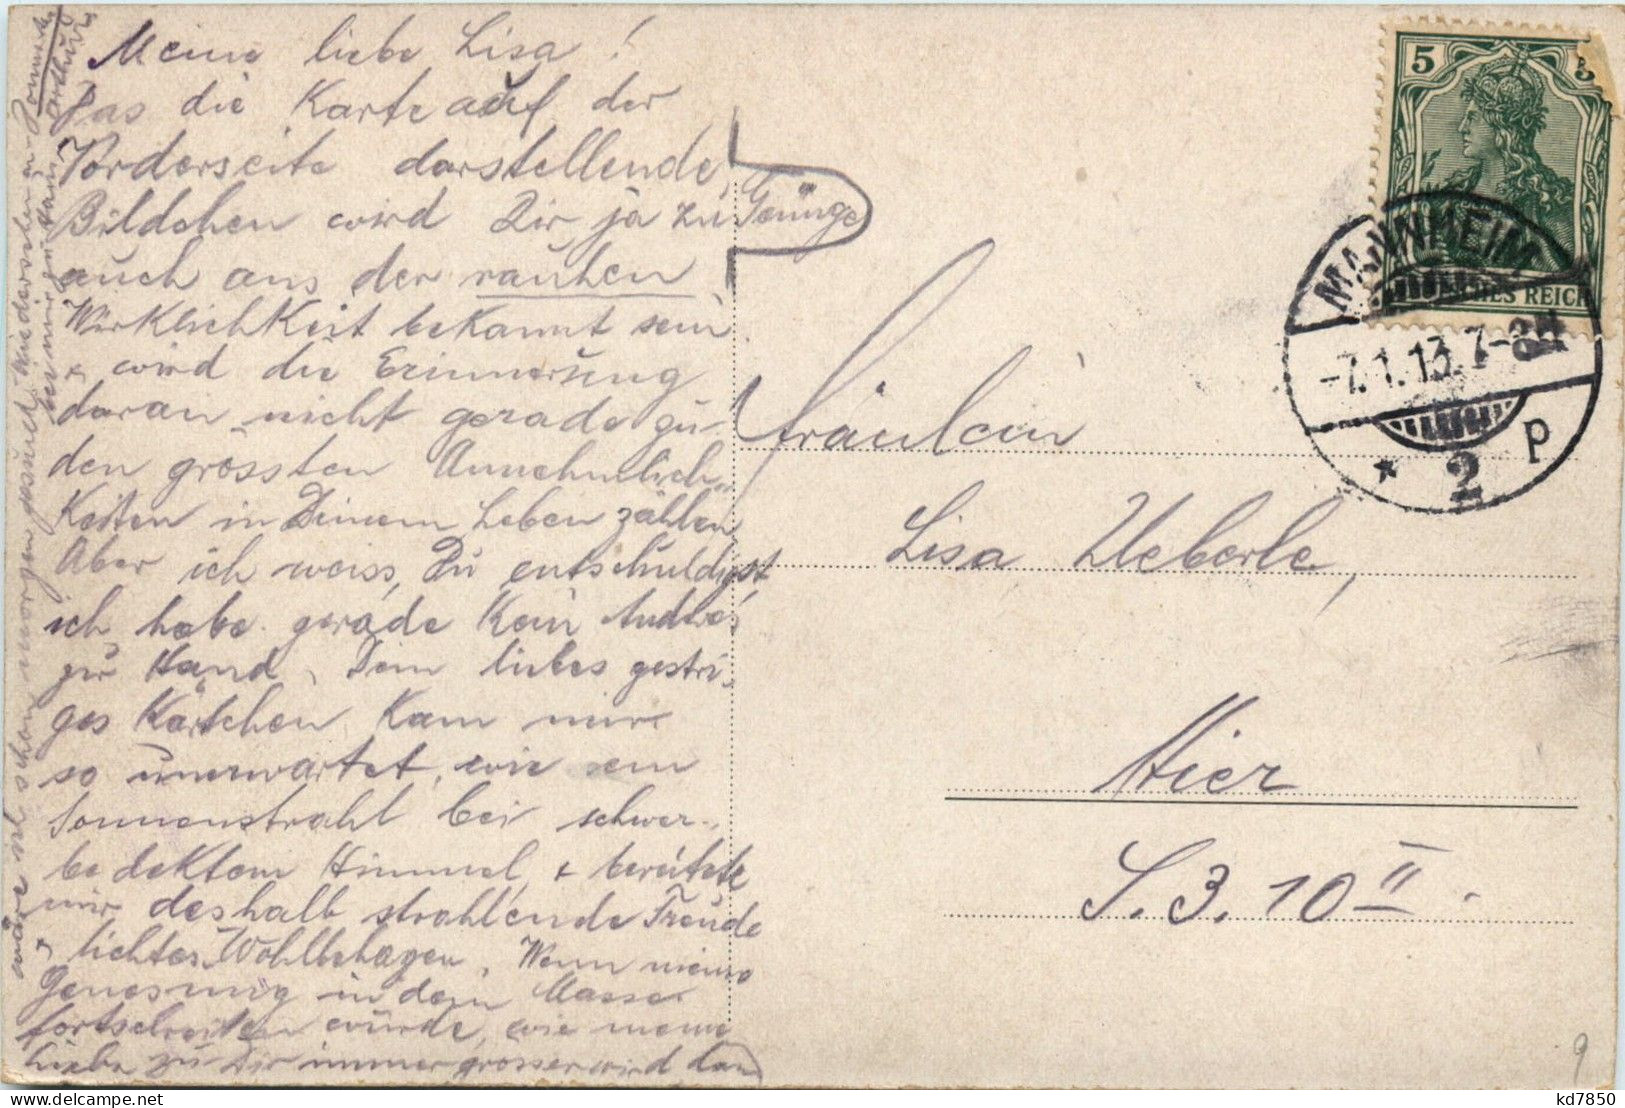 Meine liebe Lisa!
Das die Karte auf der
Vorderseite darstellende
Bildchen wird Dir ja zu Genüge
auch aus der rauhen
Wirklichkeit bekannt sein
+ wird die Erinnerung
daran nicht gerade zu
den grössten Annehmlich-
keiten in Deinem Leben zählen
Aber ich weiss, Du entschuldigst,
ich habe gerade kein Andres
zur Hand. Dein liebes gestri-
ges Kärtchen kam mir
so unerwartet, wie ein
Sonnenstrahl bei schwer-
bedektem Himmel, + bereitete
mir deshalb strahlende Freude
+ lichtes Wohlbehagen. Wenn meine
Genesung in dem Masse
fortschreiten würde, wie meine
Liebe zu Dir immer grösser wird dann
wäre ja schon morgen gesund. Wiedersehen
Arthur
5
5
DEUTSCHES REICH
MANNHEIM
-7.1.13.7-8N
* 2 p
Fräulein
Lisa Ueberle,
Hier
S. 3. 10 II.
9
kd7850